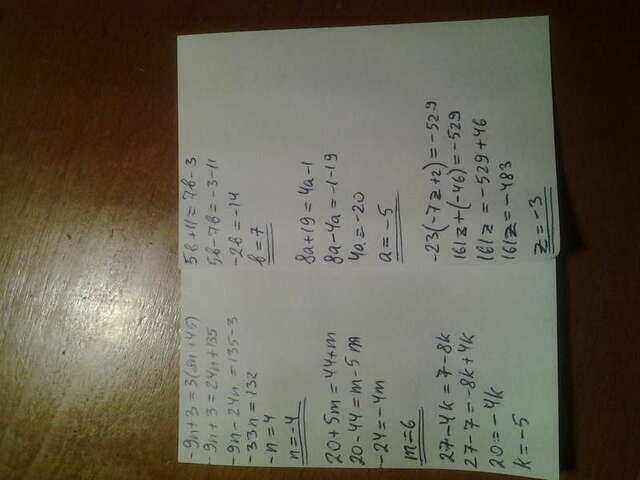 -9n+3=3(8n+45)
-9n+3=24n+135
-9n-24n=135-3
-33n=132
-n=4
n=-4
20+5m=44+m
20-44=m-5m
-24=-4m
m=6
27-4k=7-8k
27-7=-8k+4k
20=-4k
k=-5
5b+11=7b-3
5b-7b=-3-11
-2b=-14
b=7
8a+19=4a-1
8a-4a=-1-19
4a=-20
a=-5
-23(-7z+2)=-529
161z+(-46)=-529
161z=-529+46
161z=-483
z=-3